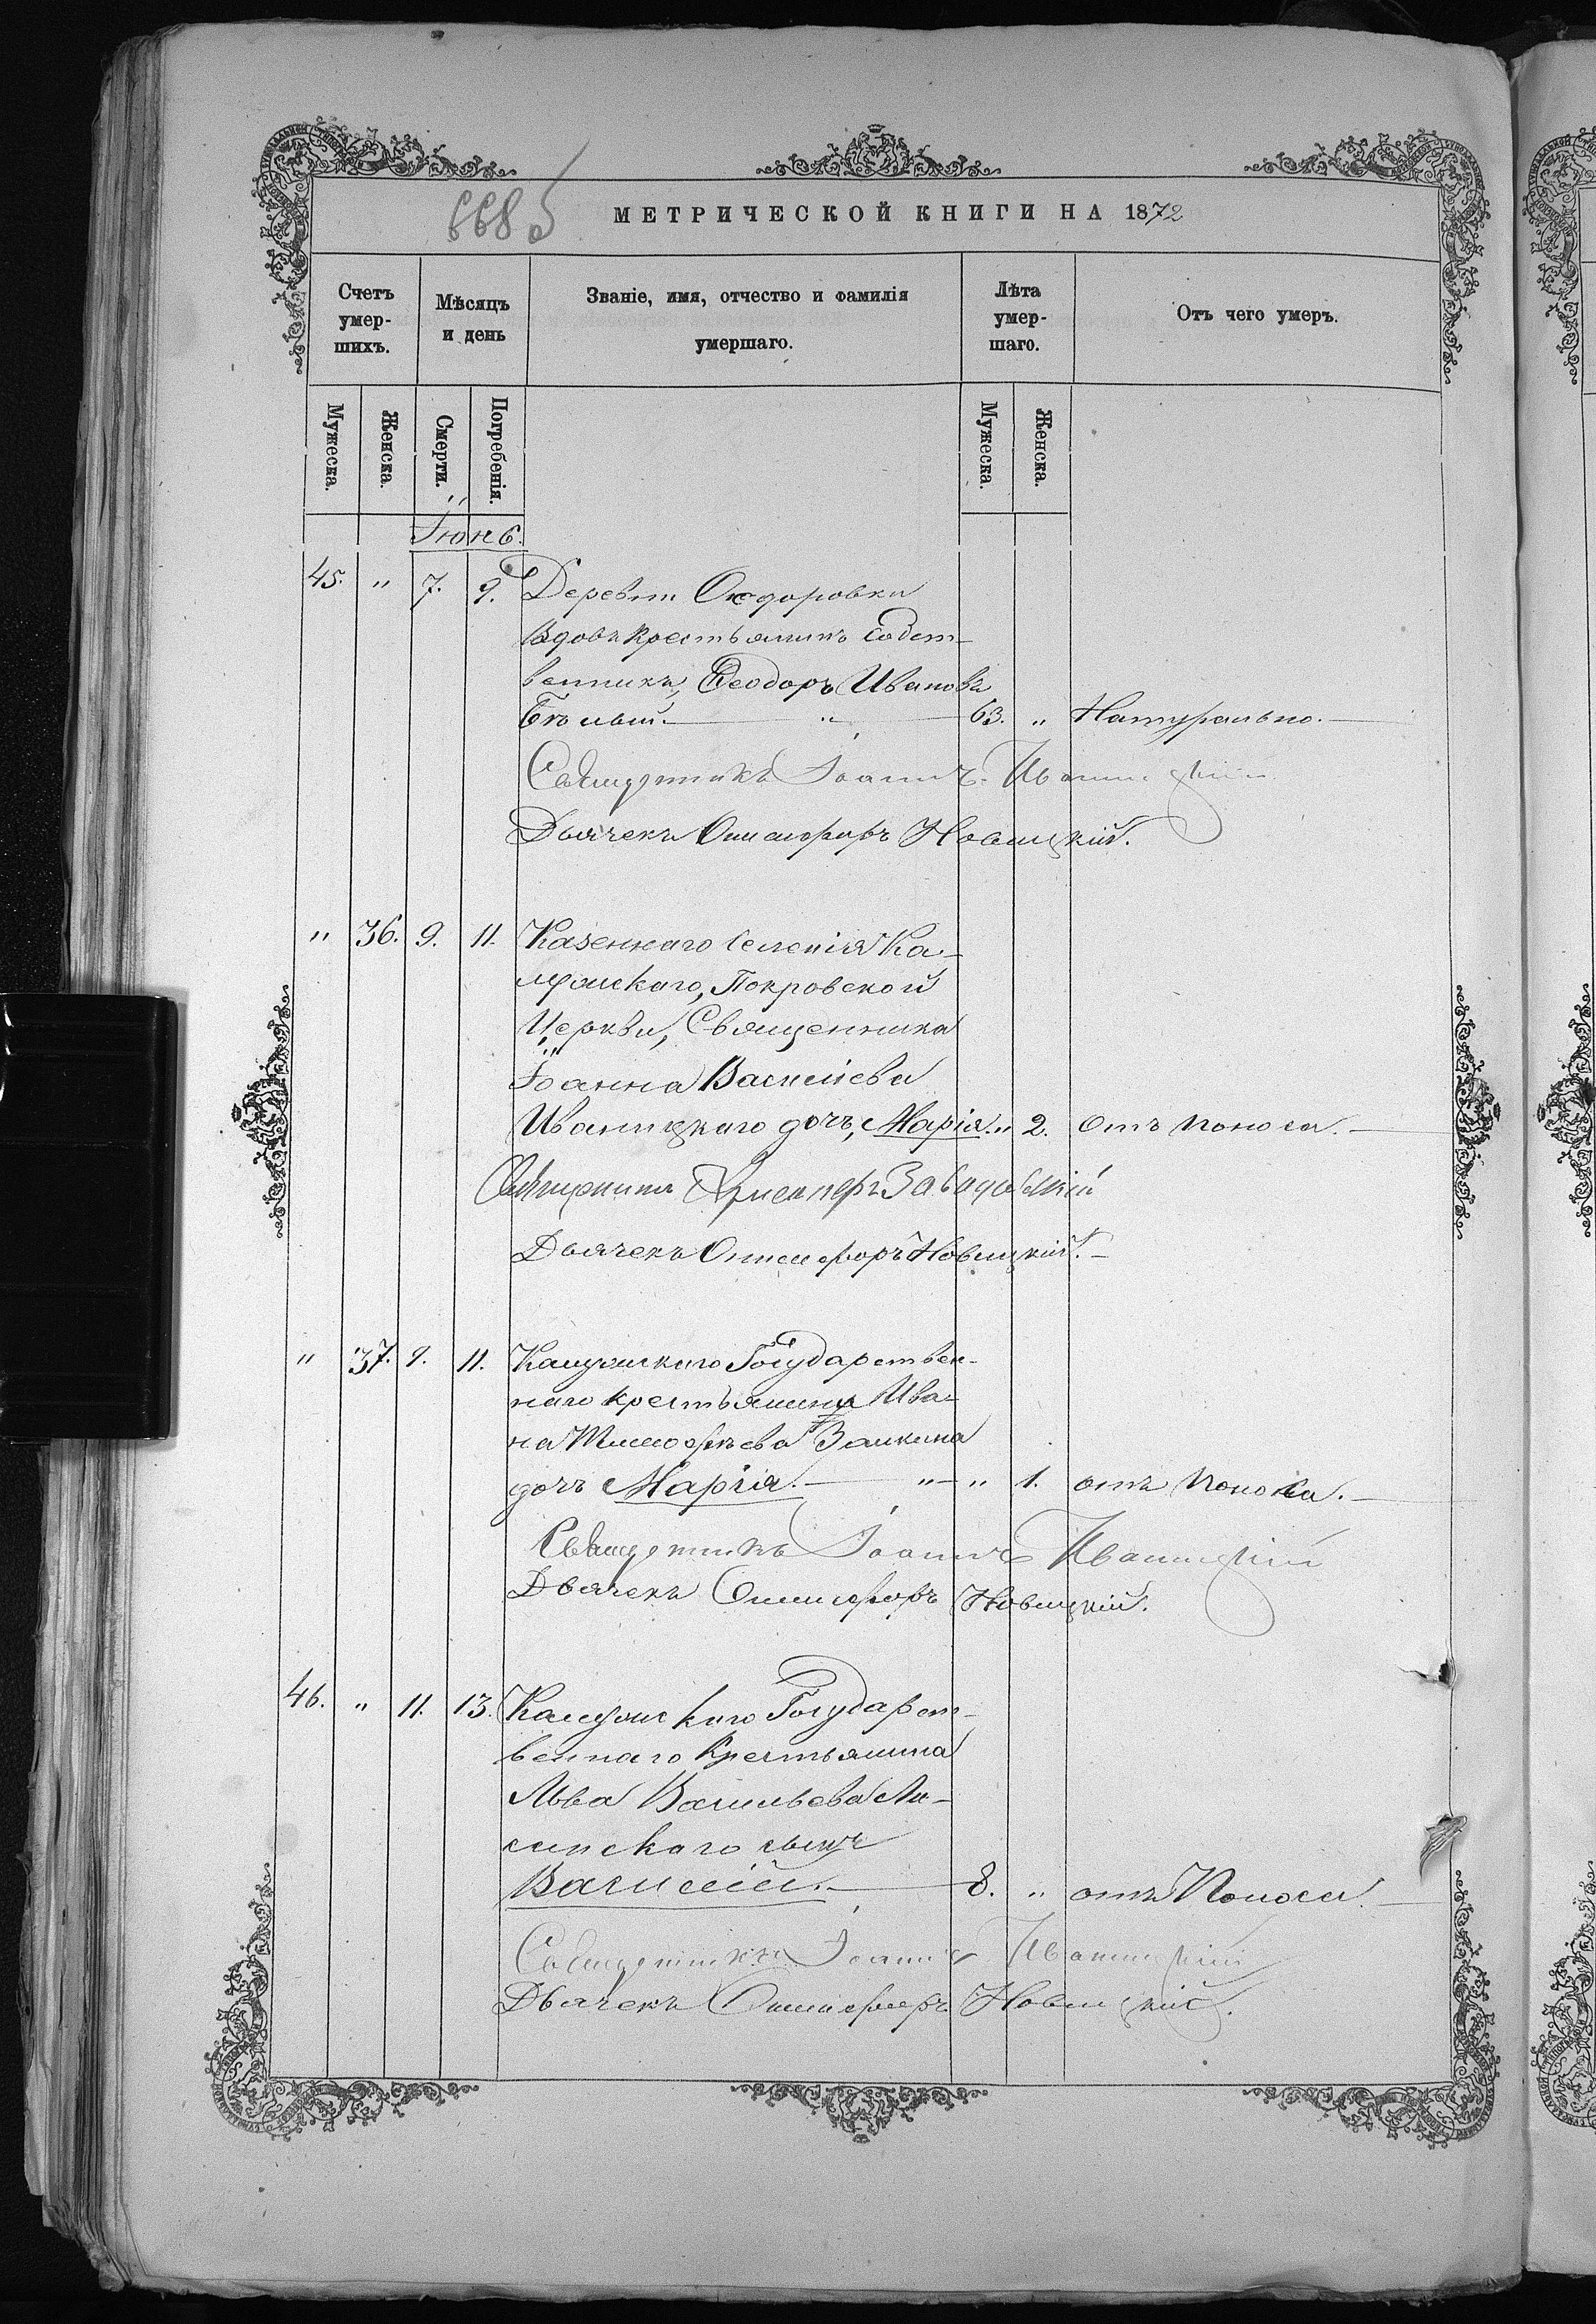 668 об
МЕТРИЧЕСКОЙ КНИГИ НА 1872
Счетъ умер-шихъ. Мѣсяцъ и день Званіе, имя, отчество и фамилія умершаго. Лѣта умер-шаго. Отъ чего умеръ.
Мужеска. Женска. Смерти. Погребенія. Мужеска. Женска.
Іюнь.
45. " 7. 9. Деревни Ѳедоровки
вдовъ крестьянинъ собст-
венникъ, Ѳеодоръ Ивановъ
Бѣлый. " 63. " Натурально.
Священникъ Іоаннъ Иваницкій
Дьячекъ Онисифоръ Новицкій.
" 36. 9. 11. Казеннаго селенія Ка-
, Покровской
Церкви, Священника
Іоанна Васильева
Иваницкаго дочь, Марія. " 2. Отъ поноса.
Священникъ Завадовскій
Дьячекъ Онисифоръ Новицкій.
" 37. 9. 11. Государствен-
наго крестьянина Ива-
на Тимофѣева Заикина
дочь Марія. " " 1. отъ поноса.
Священникъ Іоаннъ Иваницкій
Дьячекъ Онисифоръ Новицкій.
46. " 11. 13. Государст-
веннаго Крестьянина
Льва Васильева Ли-
синскаго сынъ
Василій. 8. " отъ Поноса.
Священникъ Іоаннъ Иваницкій
Дьячекъ Онисифоръ Новицкій.